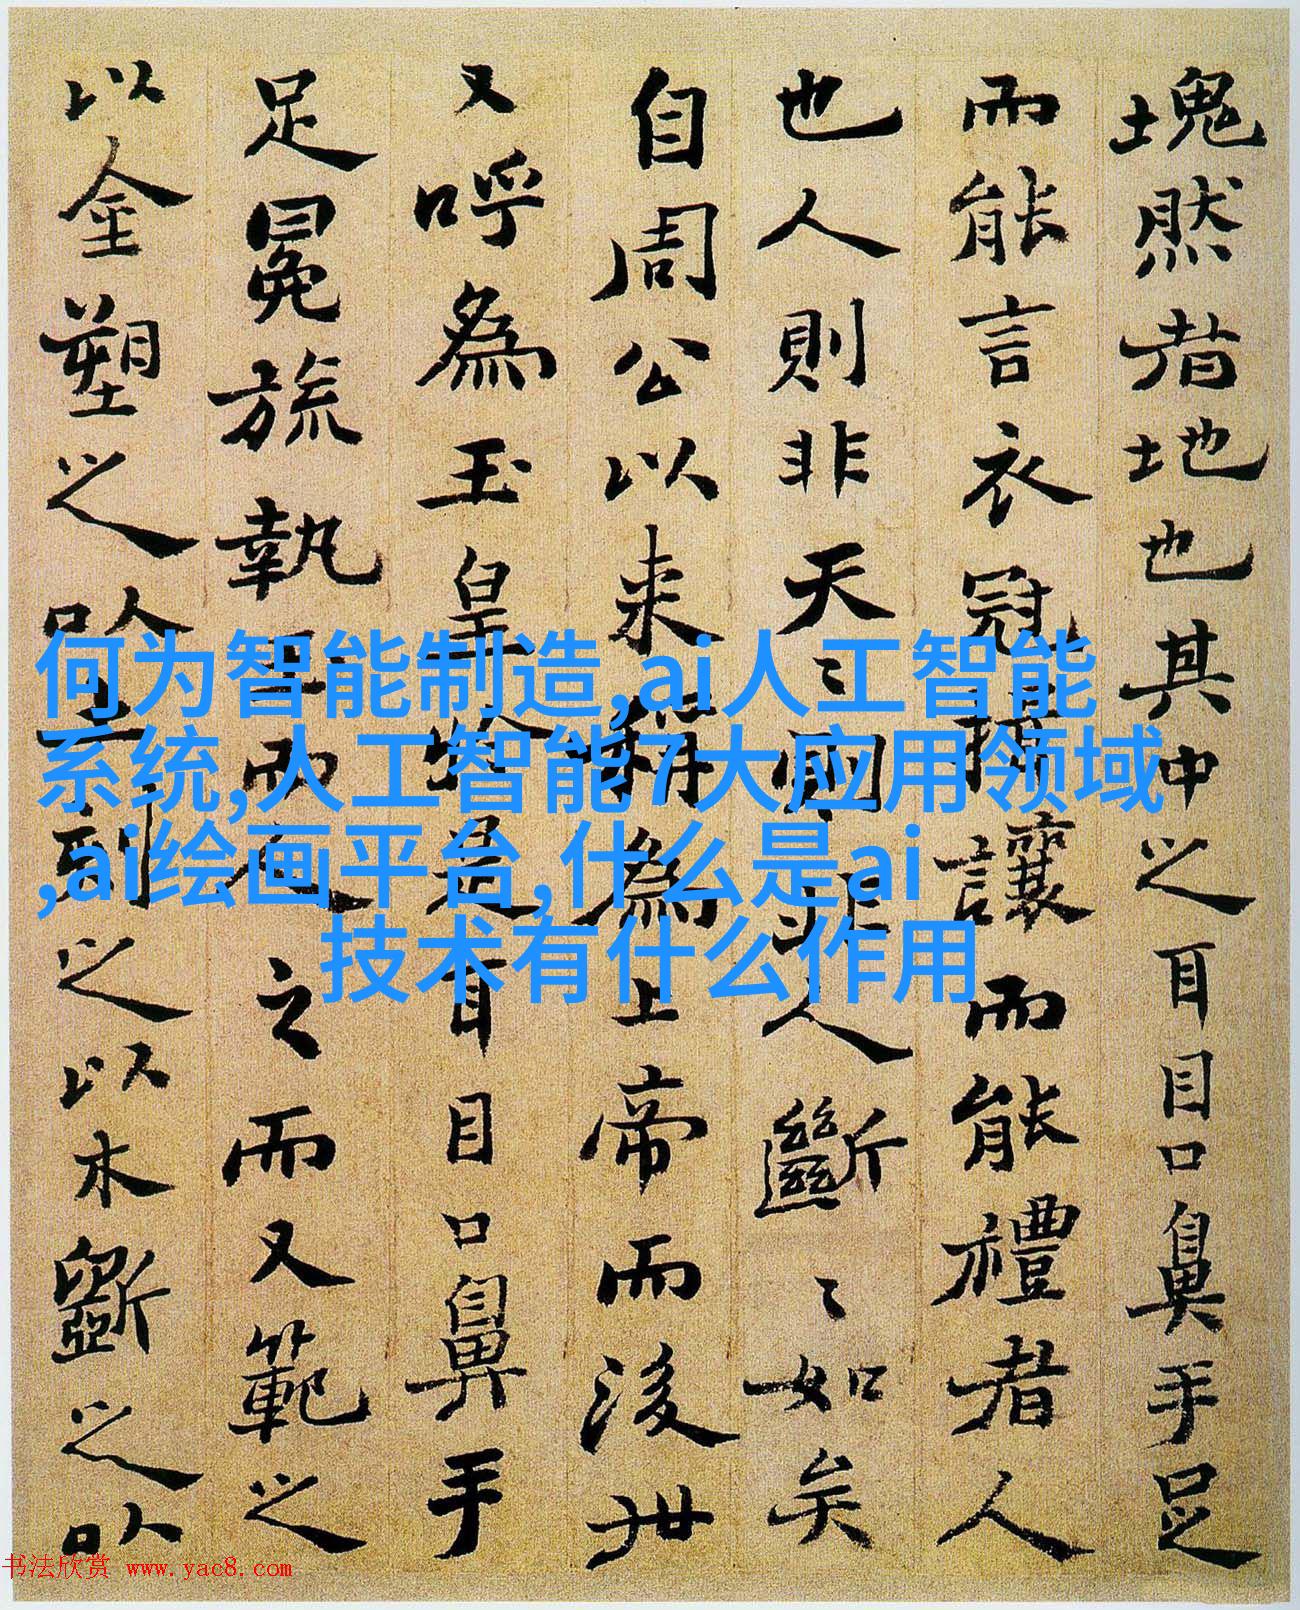 塊然者地也其中之耳目口鼻手足
而能言衣冠揖讓而能禮者人
也人則非天〻則非人斷〻如矣
自周公以来稱為上帝而後世
又呼為玉皇於是耳目口鼻手
足冕旒執玉而人之而又範之
以金塑之以土刻之以木斲之以
何为智能制造,ai人工智能
系统,人工智能7大应用领域
,ai绘画平台,什么是ai
技术有什么作用
书法欣赏 www.yac8.com